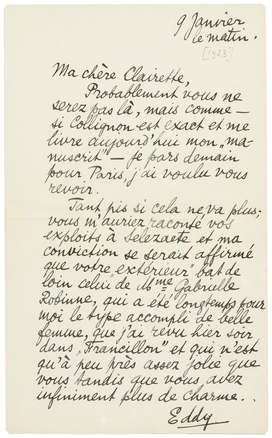 9 Janvier
le matin.
[1923]
Ma chère Clairette,
Probablement vous ne
serez pas là, mais comme –
si Collignon est exact et me
livre aujourd'hui mon „ma-
nuscrit" – je pars demain
pour Paris, j'ai voulu vous
revoir.
Tant pis si cela ne va plus;
vous m'auriez raconté vos
exploits à Selezaete et ma
conviction se serait affirmé
que votre „extérieur" bat de
loin celui de Mme Gabrielle
Robinne, qui a été longtemps pour
moi le type accompli de belle
femme, que j'ai revu hier soir
dans „Francillon" et qui n'est
qu'à peu près assez jolie que
vous tandis que vous avez
infiniment plus de charme.
Eddy.